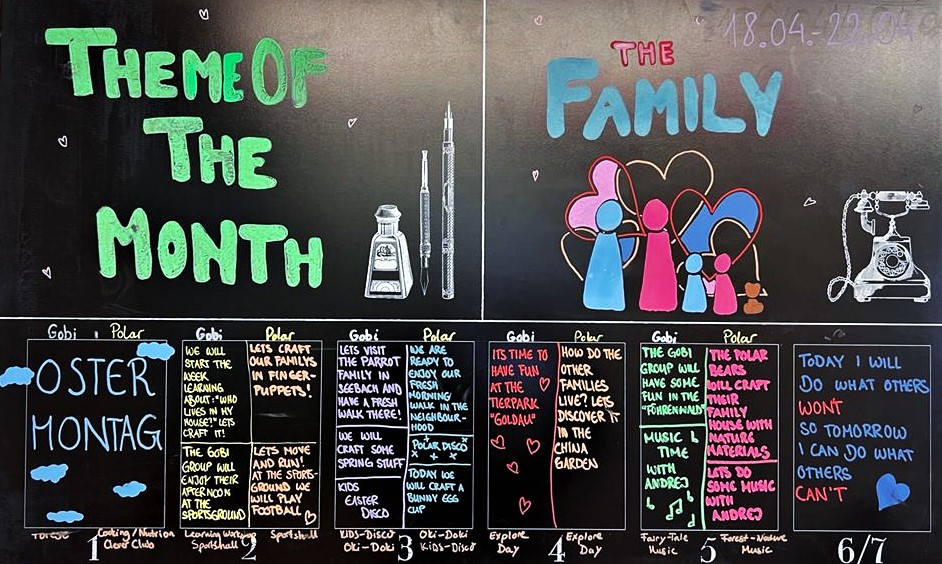 THEME OF
THE
MONTH
18.04.-22.04
THE
FAMILY
Gobi
Polar
OSTER
MONTAG
Cooking/Nutrition
Clever Club
1
Gobi
Polar
WE WILL
START THE
WEEK
LEARNING
ABOUT: "WHO
LIVES IN MY
HOUSE?" LETS
CRAFT IT!
LETS CRAFT
OUR FAMILYS
IN FINGER-
PUPPETS!
THE GOBI
GROUP WILL
ENJOY THEIR
AFTERNOON
AT THE
SPORTSGROUND
LETS MOVE
AND RUN!
AT THE SPORTS-
GROUND WE
WILL PLAY
FOOTBALL
Learning Workshop
Sportshall
Sportshall
2
Gobi
Polar
LETS VISIT
THE PARROT
FAMILY IN
SEEBACH AND
HAVE A FRESH
WALK THERE!
WE ARE
READY TO
ENJOY OUR
FRESH
MORNING
WALK IN THE
NEIGHBOUR-
HOOD
WE WILL
CRAFT SOME
SPRING STUFF
POLAR DISCO
KIDS
EASTER
DISCO
TODAY WE
WILL CRAFT A
BUNNY EGG
CUP
KIDS-DISCO
OKi-DOKi
OKi-DOKi
KiDS-DiSCO
3
Gobi
Polar
ITS TIME TO
HAVE FUN
AT THE
TIERPARK
"GOLDAU"
HOW DO THE
OTHER
FAMILIES
LIVE? LETS
DISCOVER IT
IN THE
CHINA
GARDEN
Explore
Day
Explore
Day
4
Gobi
Polar
THE GOBI
GROUP WILL
HAVE SOME
FUN IN THE
"FÖHRENWALD"
THE POLAR
BEARS
WILL CRAFT
THEIR
FAMILY
HOUSE WITH
NATURE
MATERIALS
MUSIC
TIME
WITH
ANDREJ
LETS DO
SOME MUSIC
WITH
ANDREJ
Fairy-Tale
Music
Forest-Nature
Music
5
TODAY I WILL
DO WHAT OTHERS
WONT
SO TOMORROW
I CAN DO WHAT
OTHERS
CAN'T
6/7